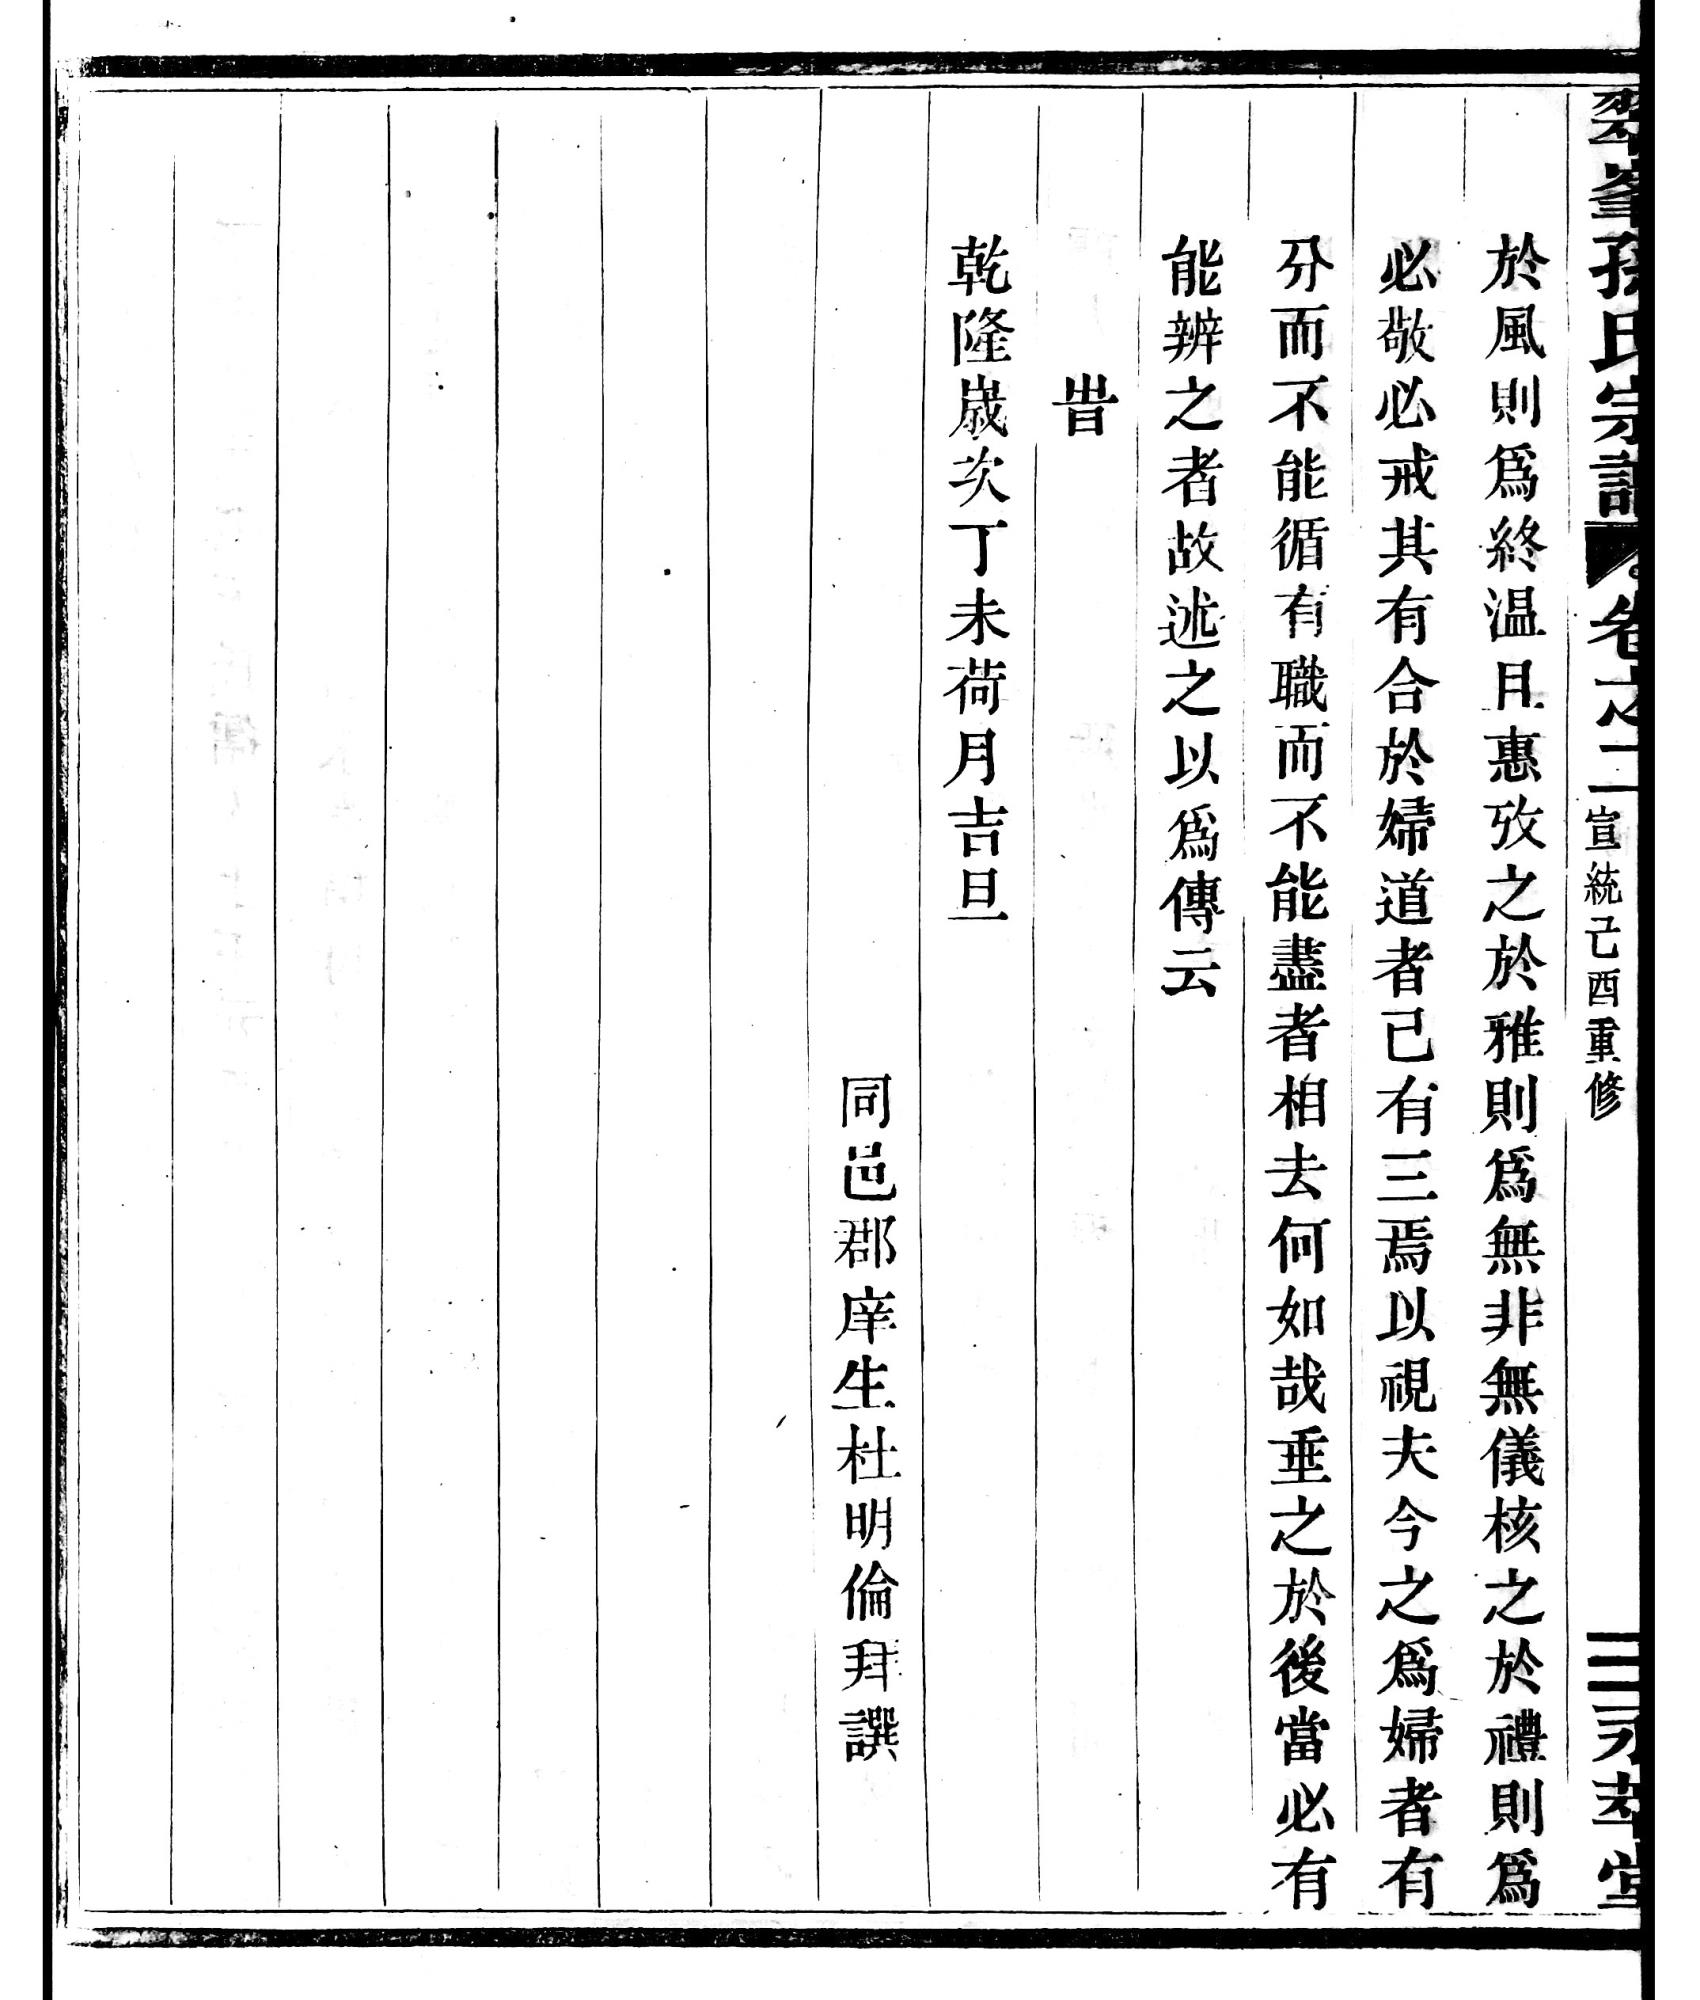 翠峯孫氏宗譜 卷之二 宣統己酉重修 三 永萃堂
於風則爲終温且惠攷之於雅則爲無非無儀核之於禮則爲
必敬必戒其有合於婦道者己有三焉以視夫今之爲婦者有
分而不能循有職而不能盡者相去何如哉垂之於後當必有
能辨之者故述之以爲傳云
旹
乾隆歲次丁未荷月吉旦
同邑郡庠生杜明倫拜譔